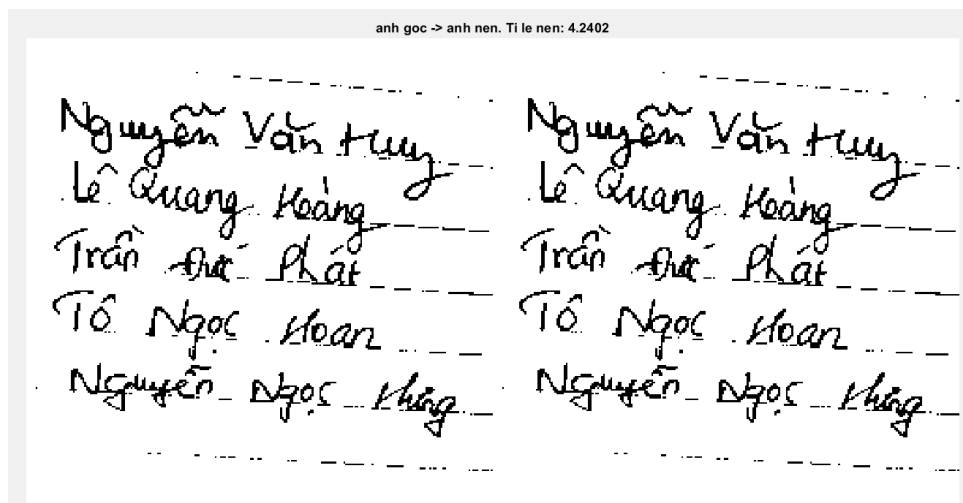 anh goc -> anh nen. Ti le nen: 4.2402
Nguyễn Văn Huy
Lê Quang Hoàng
Trần Đức Phát
Tô Ngọc Hoan
Nguyễn Ngọc
Nguyễn Văn Huy
Lê Quang Hoàng
Trần Đức Phát
Tô Ngọc Hoan
Nguyễn Ngọc